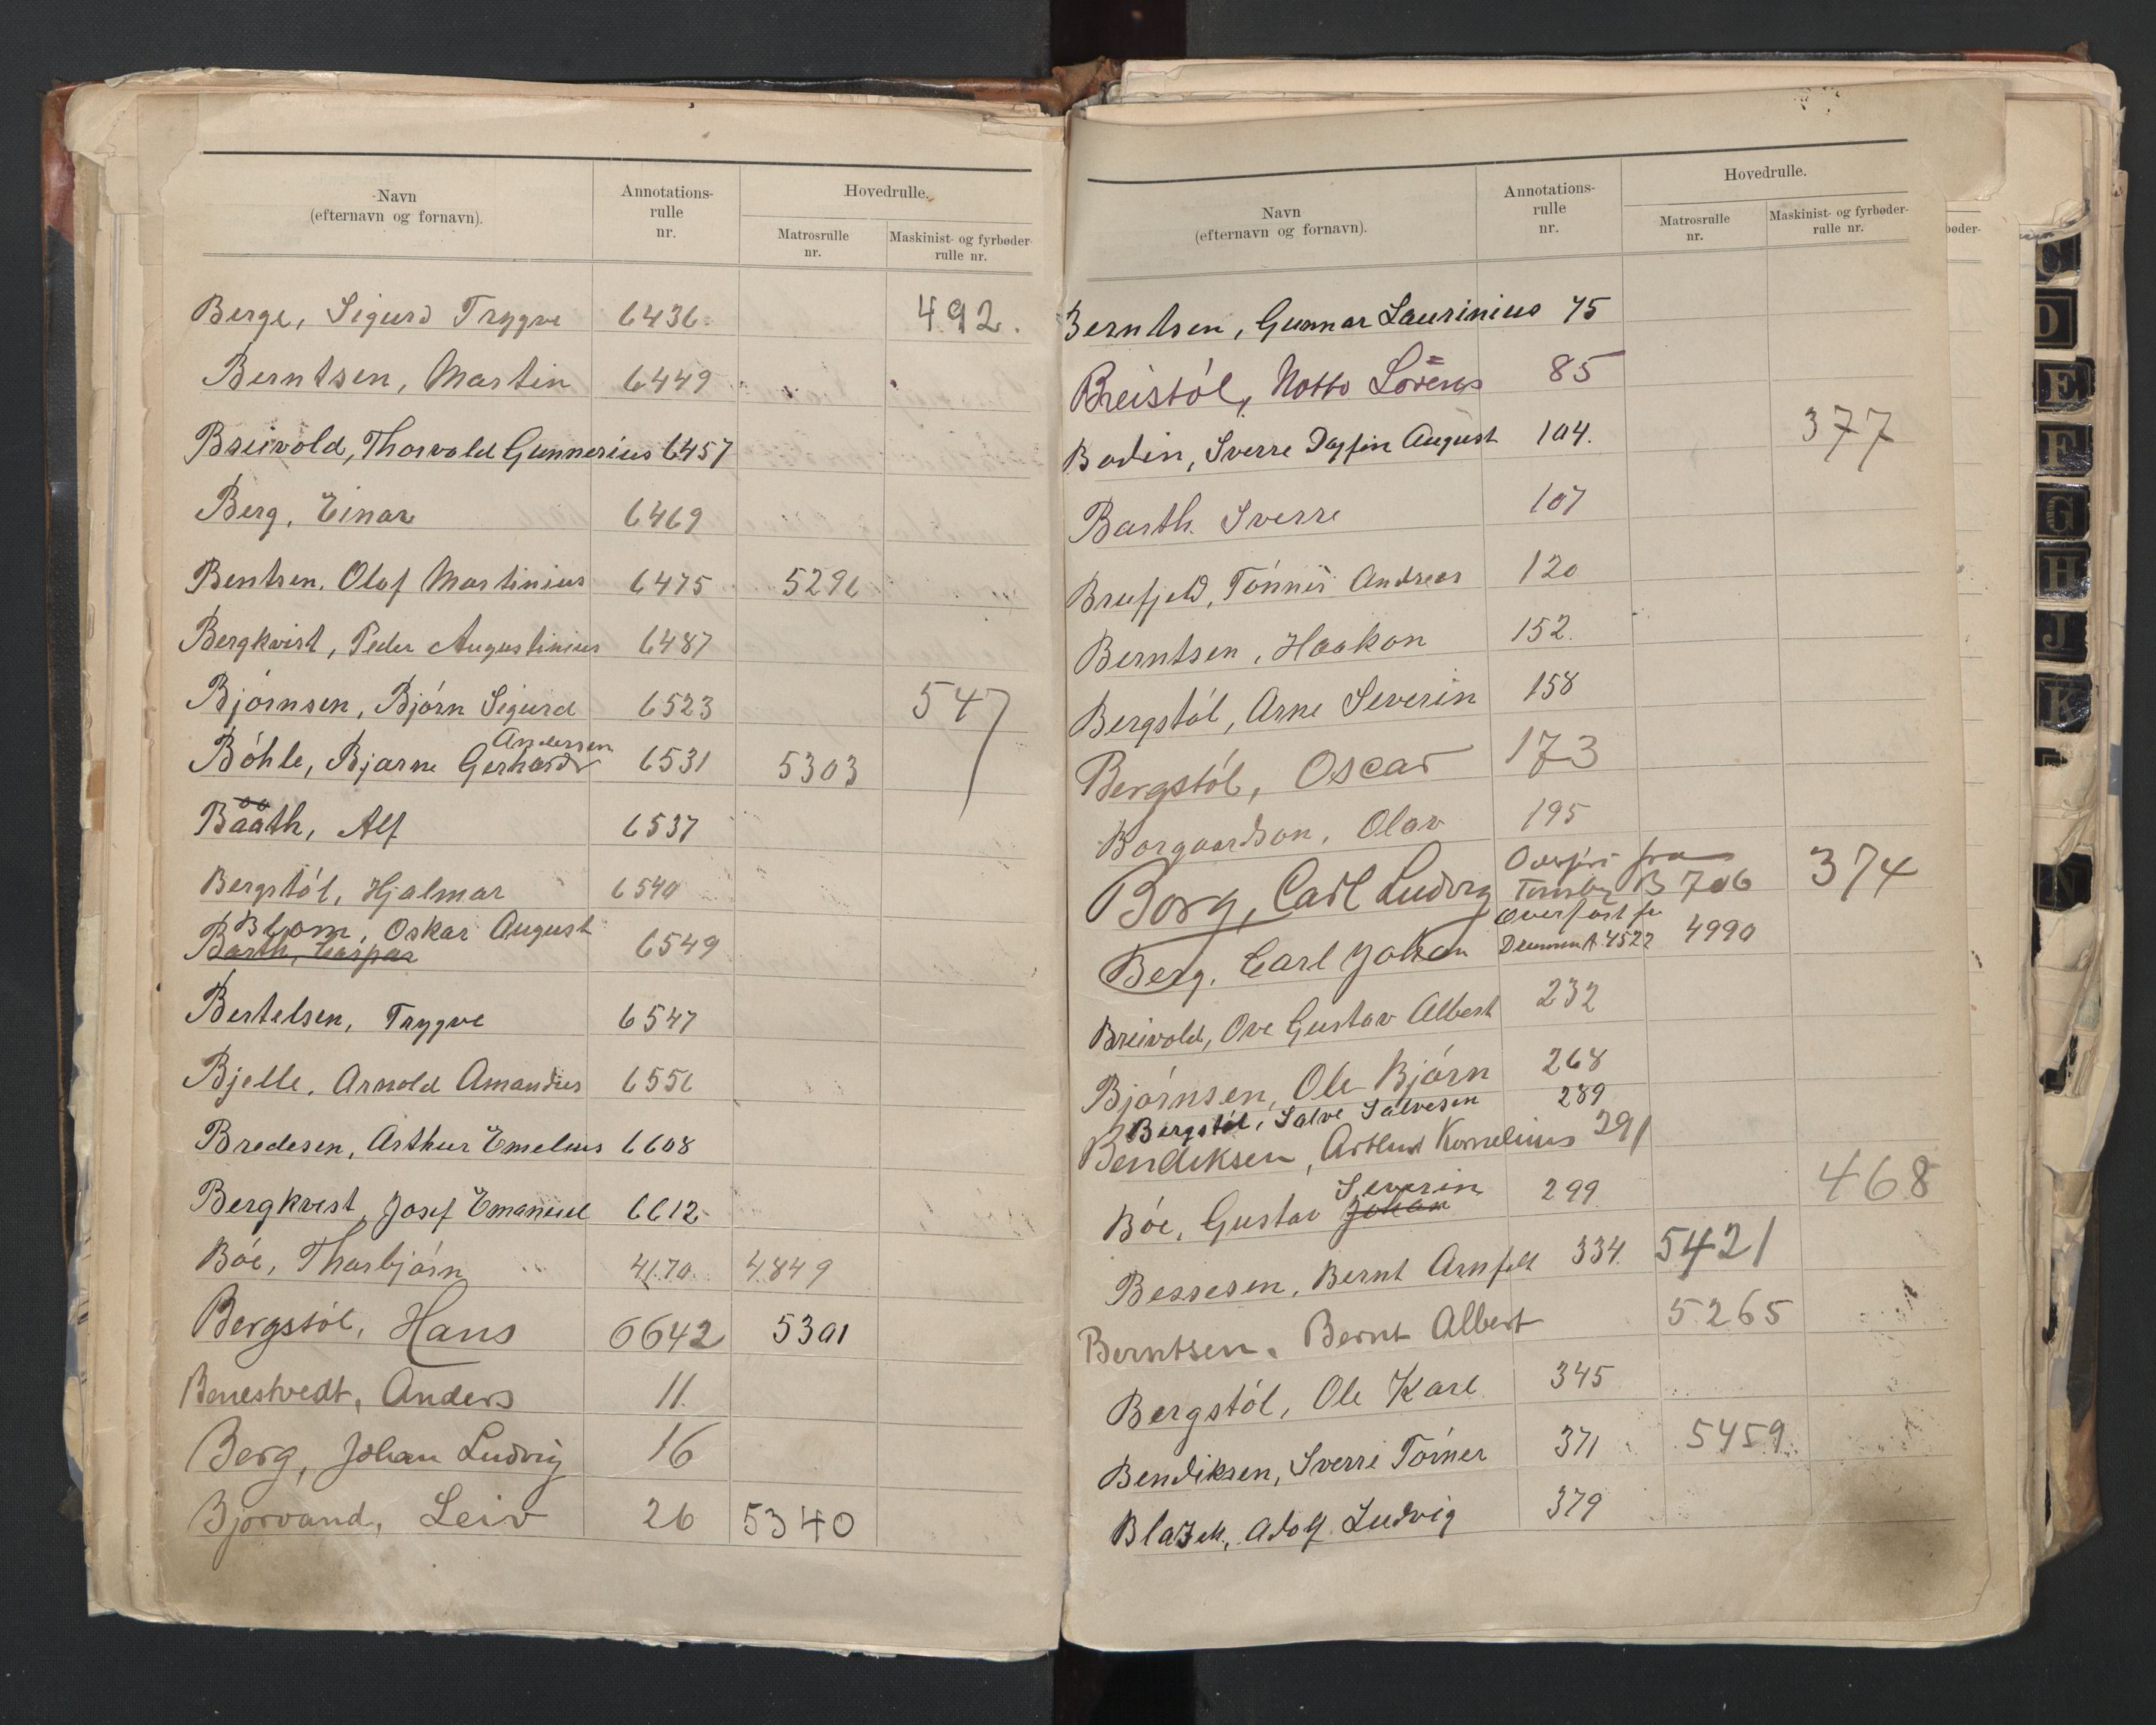 Navn
(efternavn og fornavn).
Annotations-
rulle
nr.
Hovedrulle.
Matrosrulle
nr.
Maskinist- og fyrbøder-
rulle nr.
Berge, Sigurd Trygve 6436. 492.
Berntsen, Martin 6449
Breivold, Thorvald Gunnerius 6457
Berg, Einar 6469
Bentsen, Olaf Martinius 6475 5296
Bergkvist, Peder Augustinius 6487
Bjørnsen, Bjørn Sigurd 6523 547
Andersen
Bóhle, Bjarne Gerhard 6531 5303
Baath, Alf 6537
Bergstól, Hjalmar 6540
Blom, Oskar August
Barth, Caspar 6549
Bertelsen, Trygve 6547
Bjelle, Arnold Amandus 6556
Bredesen, Arthur Emelius 6608
Bergkvist, Josef Emanuel 6612
Bóe, Thorbjórn 4170 4849
Bergstól, Hans 6642 5301
Benestvedt, Anders 11.
Berg, Johan Ludvig 16
Bjorvand, Leiv 26 5340
Navn
(efternavn og fornavn).
Annotations-
rulle
nr.
Hovedrulle.
Matrosrulle
nr.
Maskinist- og fyrbøder-
rulle nr.
bøder-
Berntsen, Gunnar Laurinius 75
Breistól, Notto Lorens 85
Bodin, Sverre Dagfin August 104. 377
Barth. Sverre 107
Brufjeld, Tónnes Andreas 120
Berntsen, Haakon 152.
Bergstól, Arne Severin 158
Bergstól, Oscar 173
Borgaardson, Olav 195
Borg, Carl Ludvig Overført fra Tønsberg B 706 374
Berg, Carl Johan Overført fr Drammen A 4522 4990
Breivold, Ove Gustav Albert 232
Bjórnsen, Ole Bjórn 268
Bergstól, Salve Salvesen 289
Bendiksen, Arthur Kornelius 291
Severin
Bóe, Gustav Johan 299 468
Bessesen, Bernt Arnfelt 334. 5421
Berntsen, Bernt Albert 5265
Bergstól, Ole Karl 345
Bendiksen, Sverre Tórner 371 5459
Blazek, Adolf Ludvig 379
C
D
E
F
G
H
J
K
N